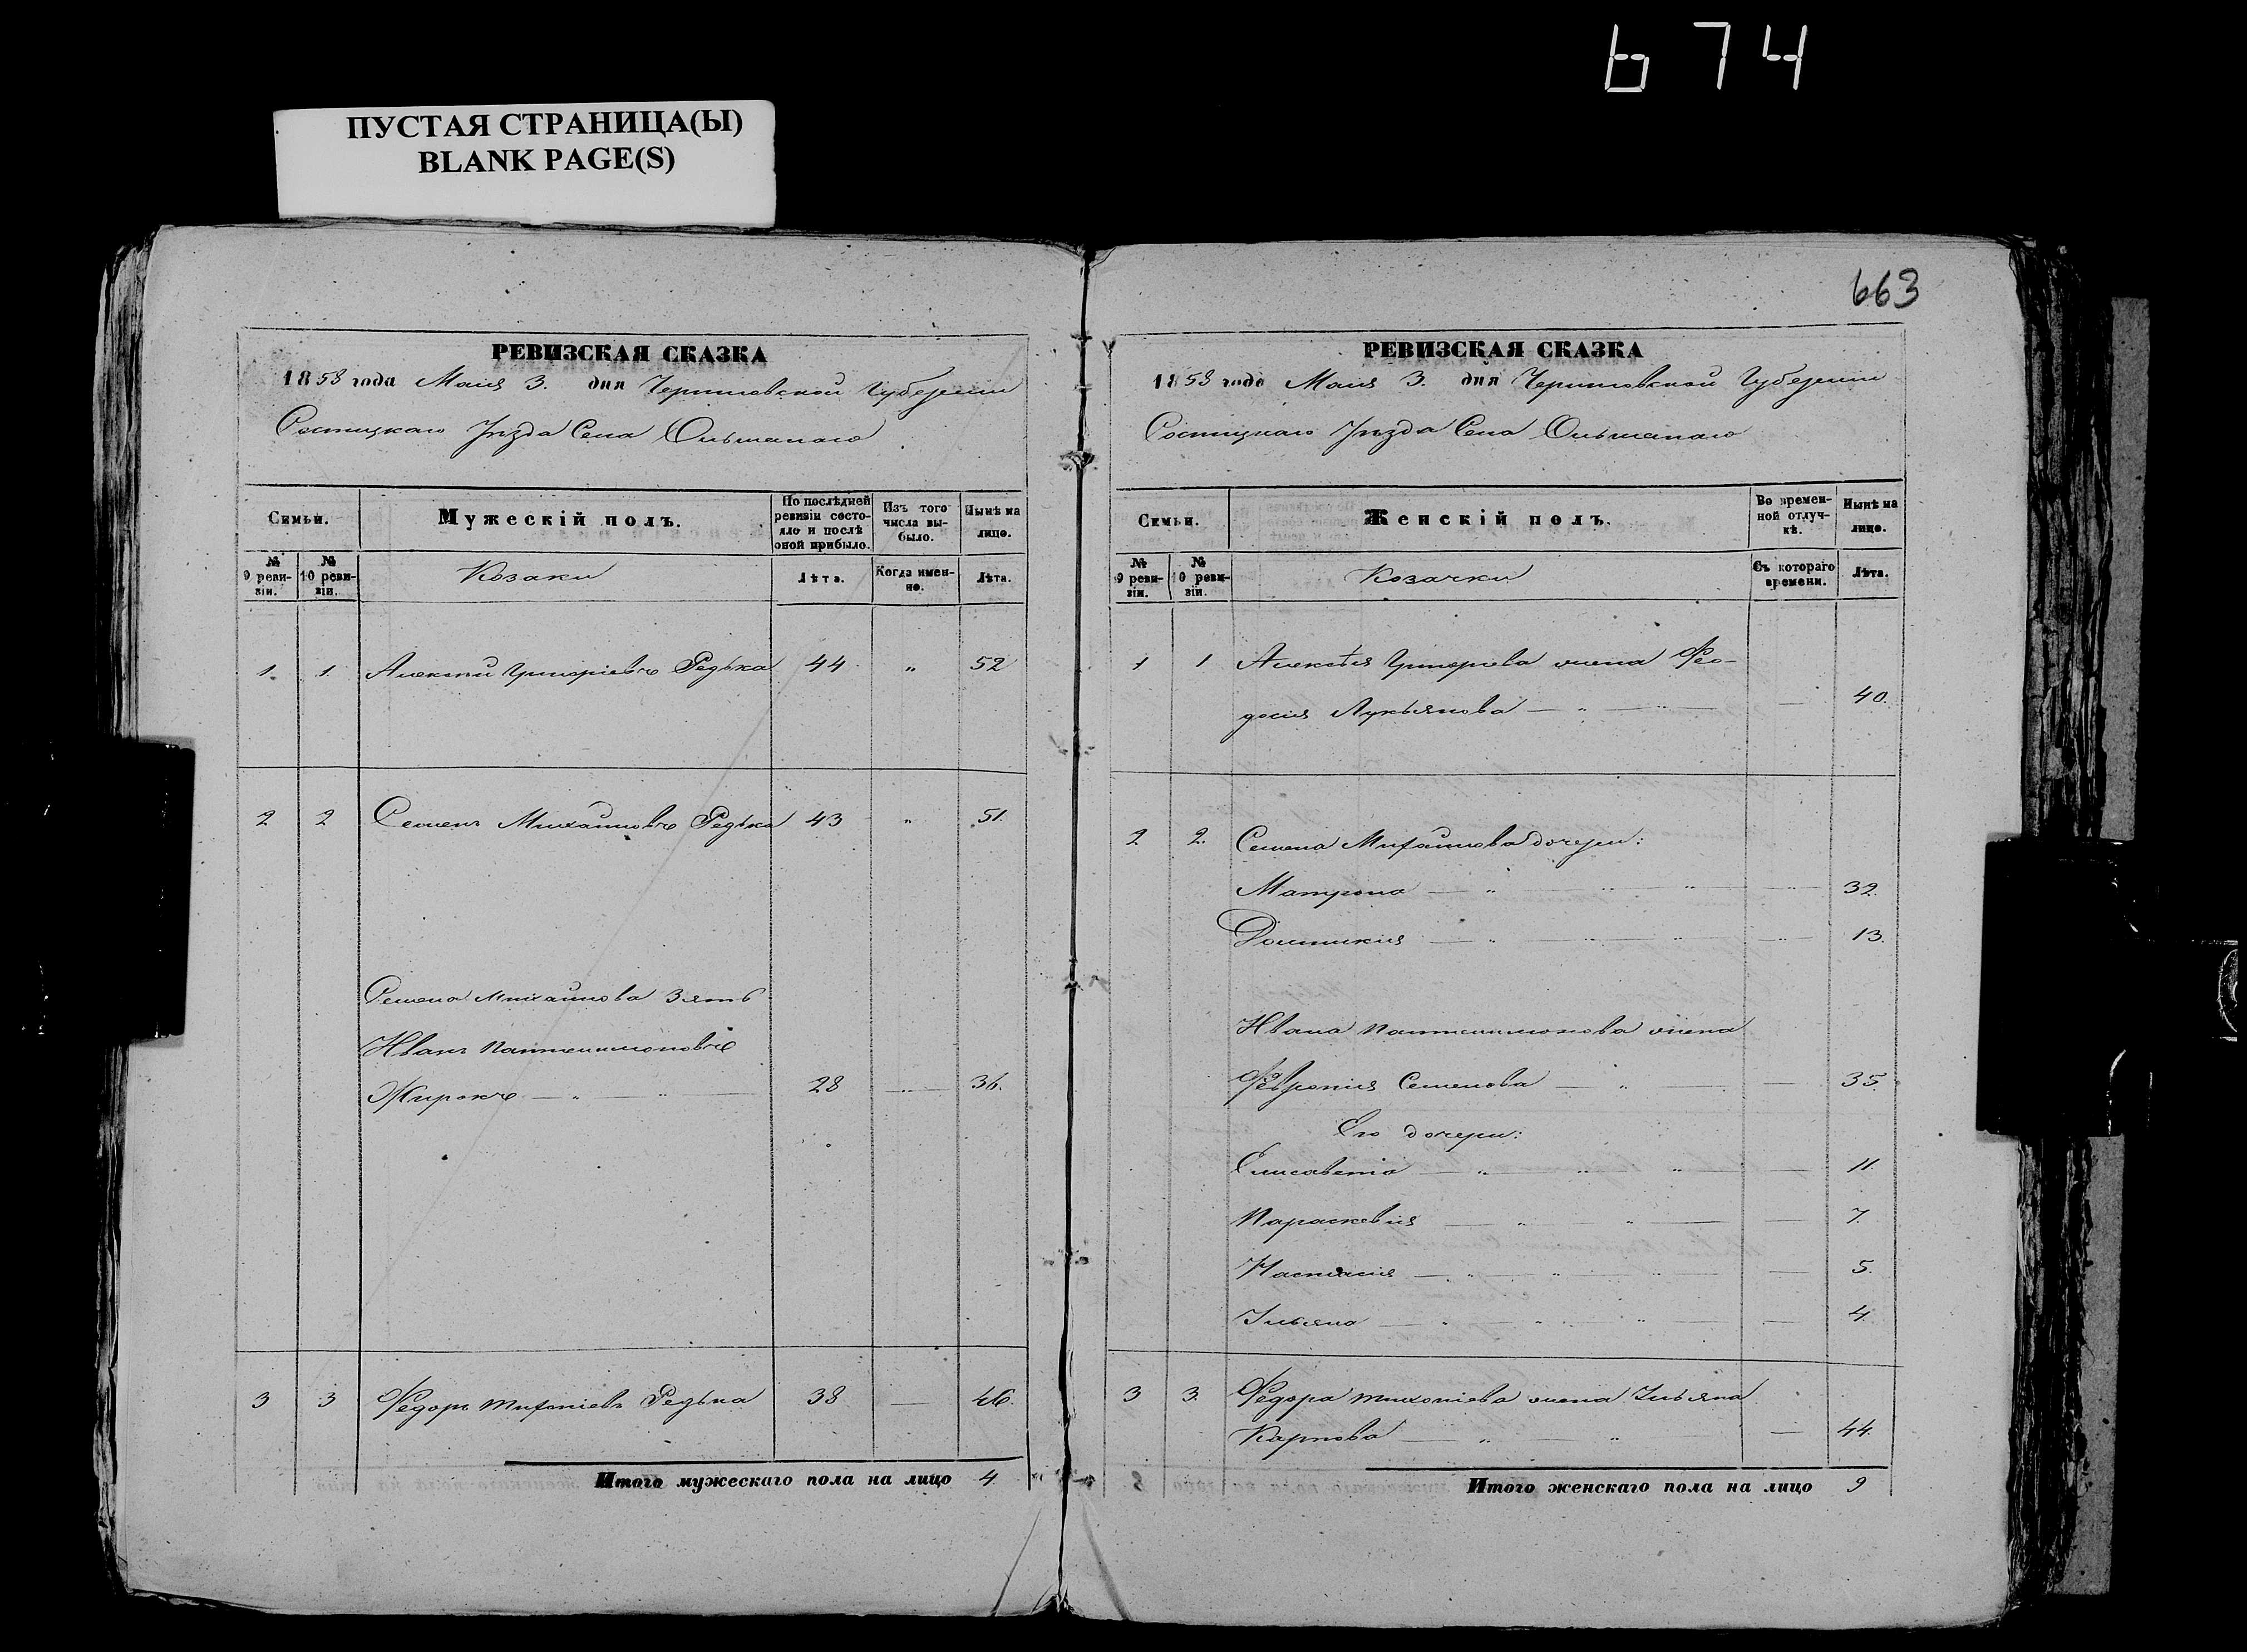 674
ПУСТАЯ СТРАНИЦА(Ы)
BLANK PAGE(S)
РЕВИЗСКАЯ СКАЗКА
1858 года Маия 3. дня Черниговской Губерніи
Сосницкаго Уѣзда Села Ольшанаго
Семьи.
Мужескій полъ.
По послѣдней ревизіи состояло и послѣ оной прибыло.
Изъ того числа выбыло.
Нынѣ на лицо.
№ 9 ревизіи.
№ 10 ревизіи.
Козаки
Лѣта.
Когда именно.
Лѣта.
1. 1. Алексѣй Григоріевъ Редька 44 „ 52
2 2 Семенъ Михайловъ Редька 43 „ 51.
Семена Михайлова Зять
Иванъ Пантелимоновъ
Жирокъ — „ — „ — 28 — 36.
3 3 Федоръ Тихоніевъ Редька 38 — 46.
Итого мужескаго пола на лицо 4
663
РЕВИЗСКАЯ СКАЗКА
1858 года Маия 3. дня Черниговской Губерніи
Сосницкаго Уѣзда Села Ольшанаго
Семьи.
Женскій полъ.
Во временной отлучкѣ.
Нынѣ на лицо.
№ 9 ревизіи.
№ 10 ревизіи.
Козачки
Съ котораго времени.
Лѣта.
1 1 Алексѣя Григоріева жена Фео-
досия Лукьянова — „ — „ — — 40.
2 2. Семена Михайлова дочери:
Матрона — „ — „ — „ — 32.
Домникия — „ — „ — „ — 13.
Ивана Пантелимонова жена
Февронія Семенова — „ — — 35.
Его дочери:
Елисавета — „ — „ — „ — 11.
Параскевія — „ — „ — — 7.
Настасия — „ — „ — „ — 5.
Ульяна — „ — „ — „ — 4.
3 3. Федора Тихоніева жена Ульяна
Карпова — „ — „ — 44.
Итого женскаго пола на лицо 9